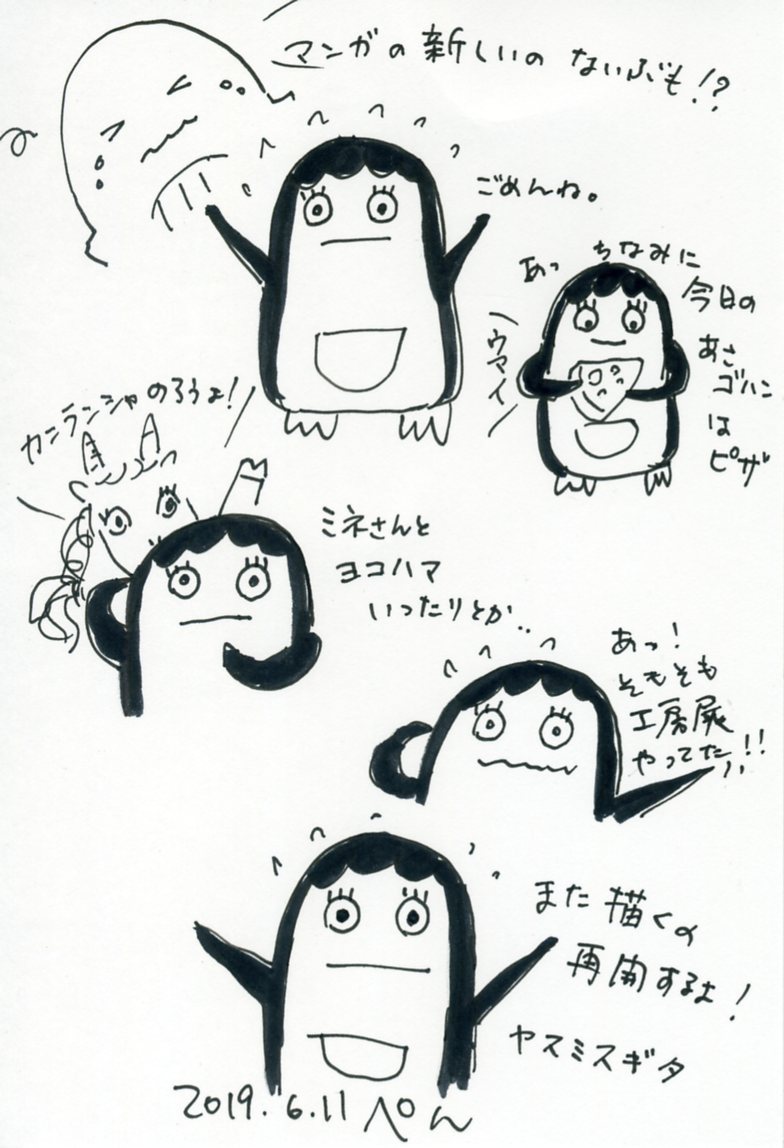 マンガの新しいの ないぶも!?
ごめんね。
あっ ちなみに
今日の
あさ
ゴハン
は
ピザ
ウマイ
カンランシャのろうよ!
ミネさんと
ヨコハマ
いったりとか..
あっ!
そもそも
工房展
やってた!!
また描くの
再開するよ!
ヤスミスギタ
2019.6.11 ぺん